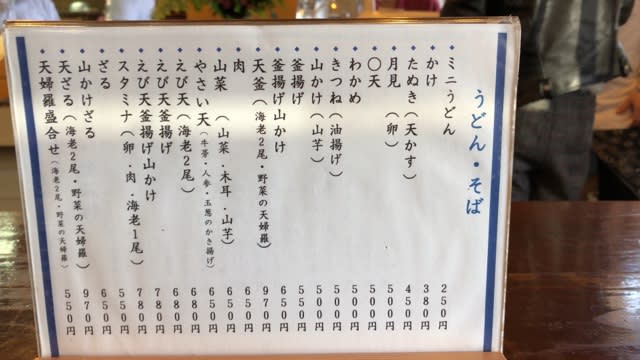 うどん・そば
ミニうどん 250円
かけ 380円
たぬき(天かす) 450円
月見(卵) 500円
〇天 500円
わかめ 500円
きつね(油揚げ) 500円
山かけ(山芋) 500円
釜揚げ 550円
釜揚げ山かけ 650円
天釜(海老2尾・野菜の天婦羅) 970円
肉 650円
山菜(山菜・木耳・山芋) 650円
やさい天(牛蒡・人参・玉葱のかき揚げ) 650円
えび天(海老2尾) 680円
えび天釜揚げ 680円
えび天釜揚げ山かけ 780円
スタミナ(卵・肉・海老1尾) 780円
ざる 550円
山かけざる 650円
天ざる(海老2尾・野菜の天婦羅) 970円
天婦羅盛合せ(海老2尾・野菜の天婦羅) 550円